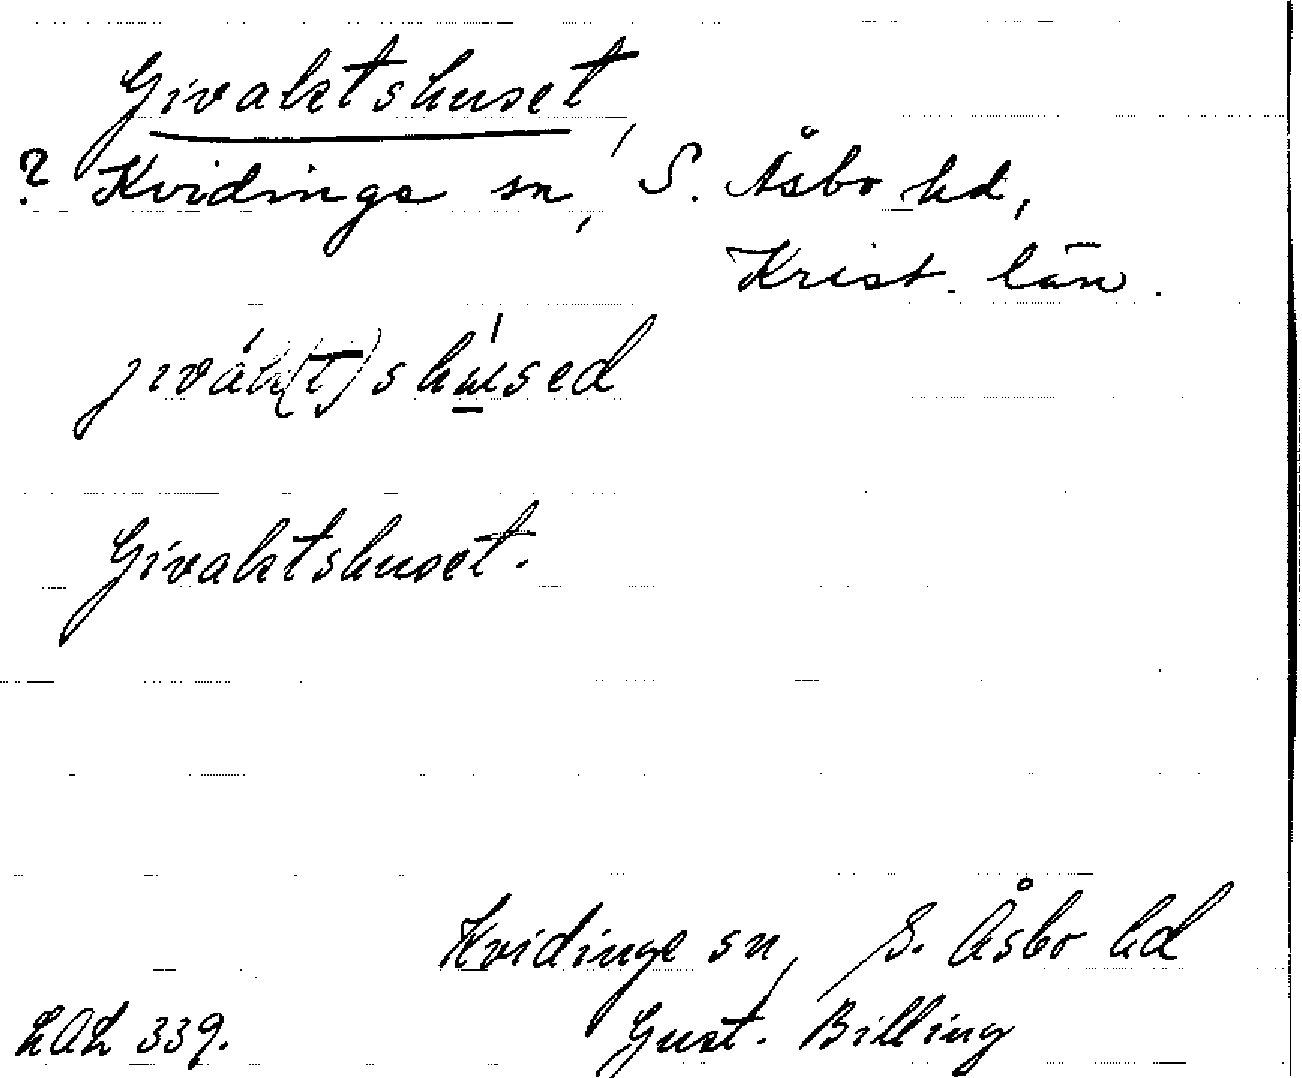 Givaktshuset,
? Kvidinge sn, S. Åsbo hd,
Krist. län.
jivák(t)shu̲sed
Givaktshuset.
Kvidinge sn, S. Åsbo hd
LAL 339. Gust. Billing